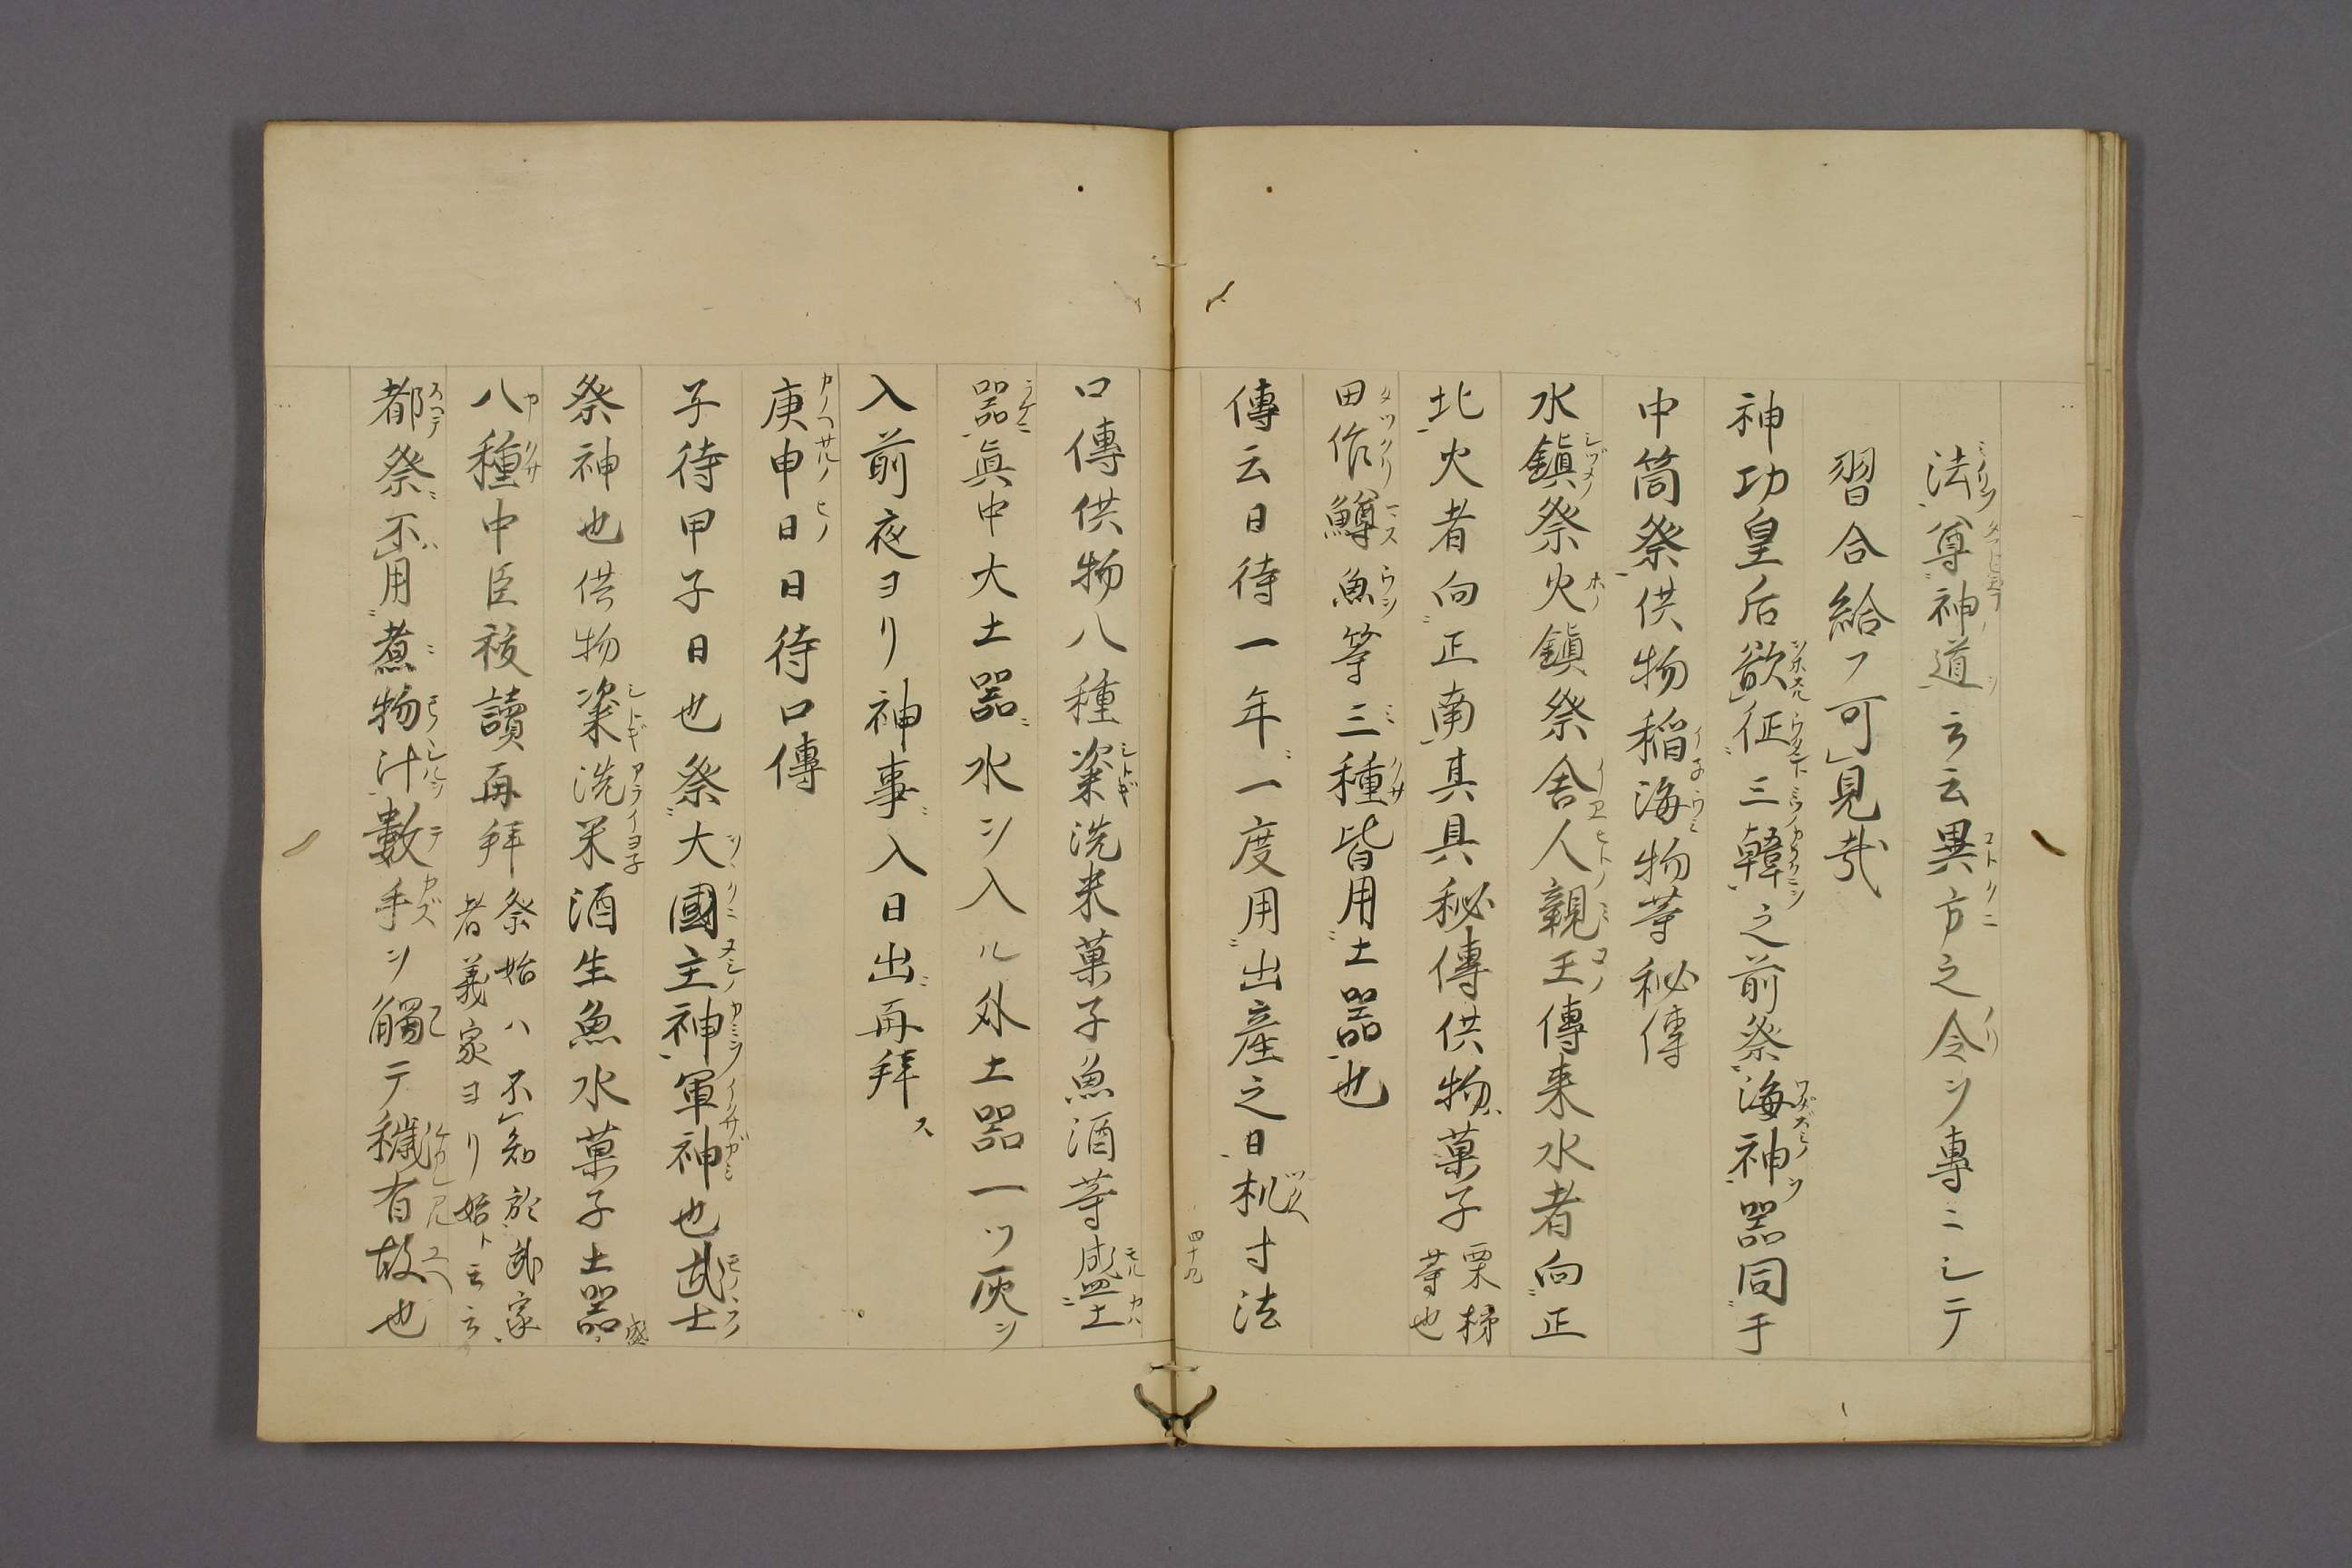 法尊神道ヿ云異方之令ヲ專ニシテ
習合給フ可見哉
神功皇后欲征三韓之前祭海神器同于
中筒祭供物稲海物等秘傳
水鎮祭火鎮祭舎人親王傳来水者向正
北火者向正南其具秘傳供物菓子栗柹
等也
田作鱒魚等三種皆用土器也
傳云日待一年一度用出産之日机寸法
四十九
口傳供物八種粢洗米菓子魚酒等盛土
器真中大土器水ヲ入ル外土器一ツ灰ヲ
入前夜ヨリ神事入日出再拜ス
庚申日日待口傳
子待甲子日也祭大國主神軍神也武士
祭神也供物粢洗米酒生魚水菓子土器盛
八種中臣祓讀再拜祭始ハ不知於武家
者義家ヨリ始ト云云
都祭不用煮物汁數手ヲ觸テ穢有故也